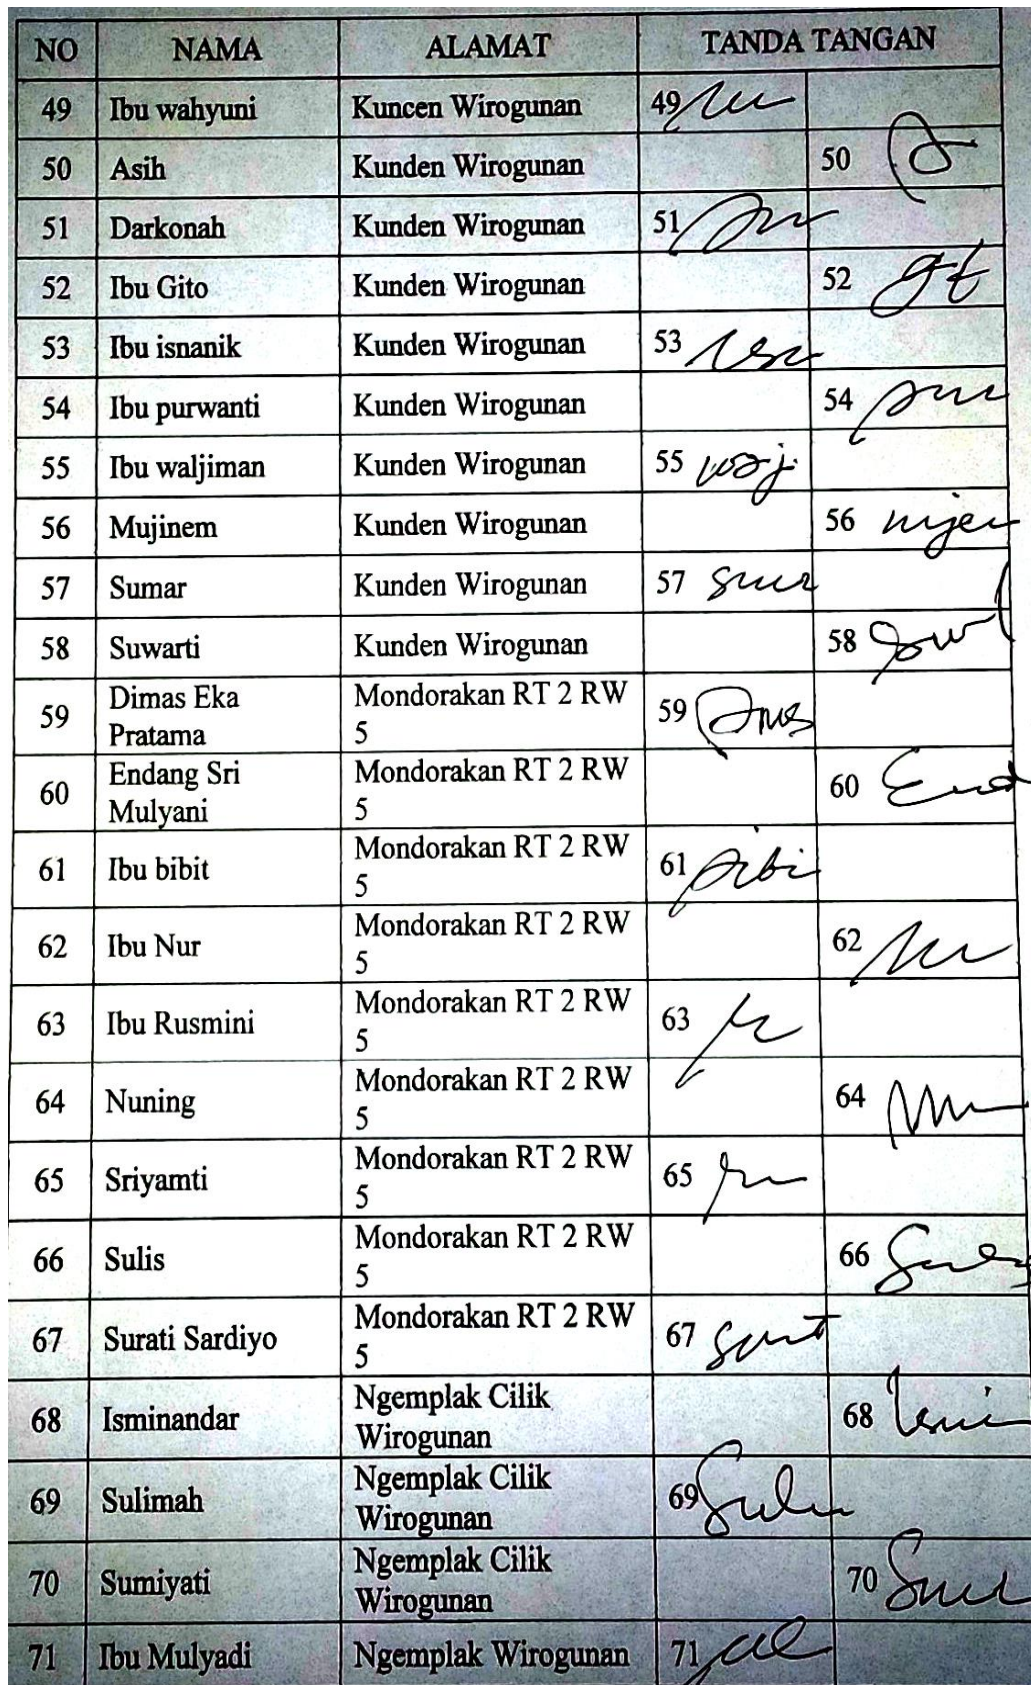 NO NAMA ALAMAT TANDA TANGAN
49 Ibu wahyuni Kuncen Wirogunan 49
50 Asih Kunden Wirogunan 50
51 Darkonah Kunden Wirogunan 51
52 Ibu Gito Kunden Wirogunan 52
53 Ibu isnanik Kunden Wirogunan 53
54 Ibu purwanti Kunden Wirogunan 54
55 Ibu waljiman Kunden Wirogunan 55
56 Mujinem Kunden Wirogunan 56
57 Sumar Kunden Wirogunan 57
58 Suwarti Kunden Wirogunan 58
59 Dimas Eka Mondorakan RT 2 RW 59
Pratama 5
60 Endang Sri Mondorakan RT 2 RW 60
Mulyani 5
61 Ibu bibit Mondorakan RT 2 RW 61
5
62 Ibu Nur Mondorakan RT 2 RW 62
5
63 Ibu Rusmini Mondorakan RT 2 RW 63
5
64 Nuning Mondorakan RT 2 RW 64
5
65 Sriyamti Mondorakan RT 2 RW 65
5
66 Sulis Mondorakan RT 2 RW 66
5
67 Surati Sardiyo Mondorakan RT 2 RW 67
5
68 Isminandar Ngemplak Cilik 68
Wirogunan
69 Sulimah Ngemplak Cilik 69
Wirogunan
70 Sumiyati Ngemplak Cilik 70
Wirogunan
71 Ibu Mulyadi Ngemplak Wirogunan 71